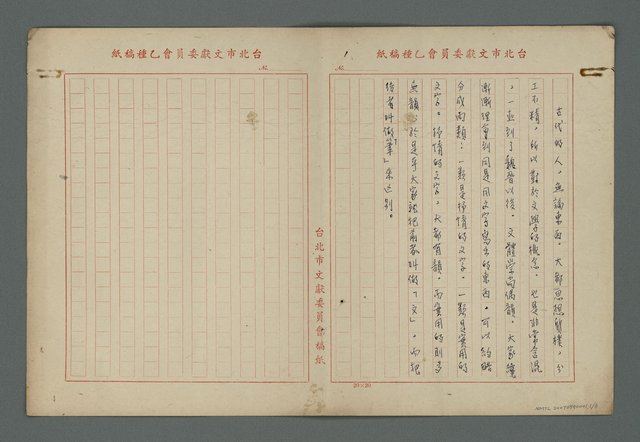 台北市文獻委員會乙種稿紙
No.
1
古代的人,無論東西,大都思想質樸,分
工不精,所以對於文學的概念,也是非常含混
。一直到了魏晉以後,文體崇尚偶韻,大家纔
漸漸理會到同是用文字寫出的東西,可以約略
分成兩類:一類是抒情的文字,一類是實用的
文字。抒情的文字,大都有韻,而實用的則多
無韻,於是乎大家就把前者叫做「文」,而把
後者叫做「筆」來區別。
20×20
台北市文獻委員會乙種稿紙
No.
台北市文獻委員會稿紙